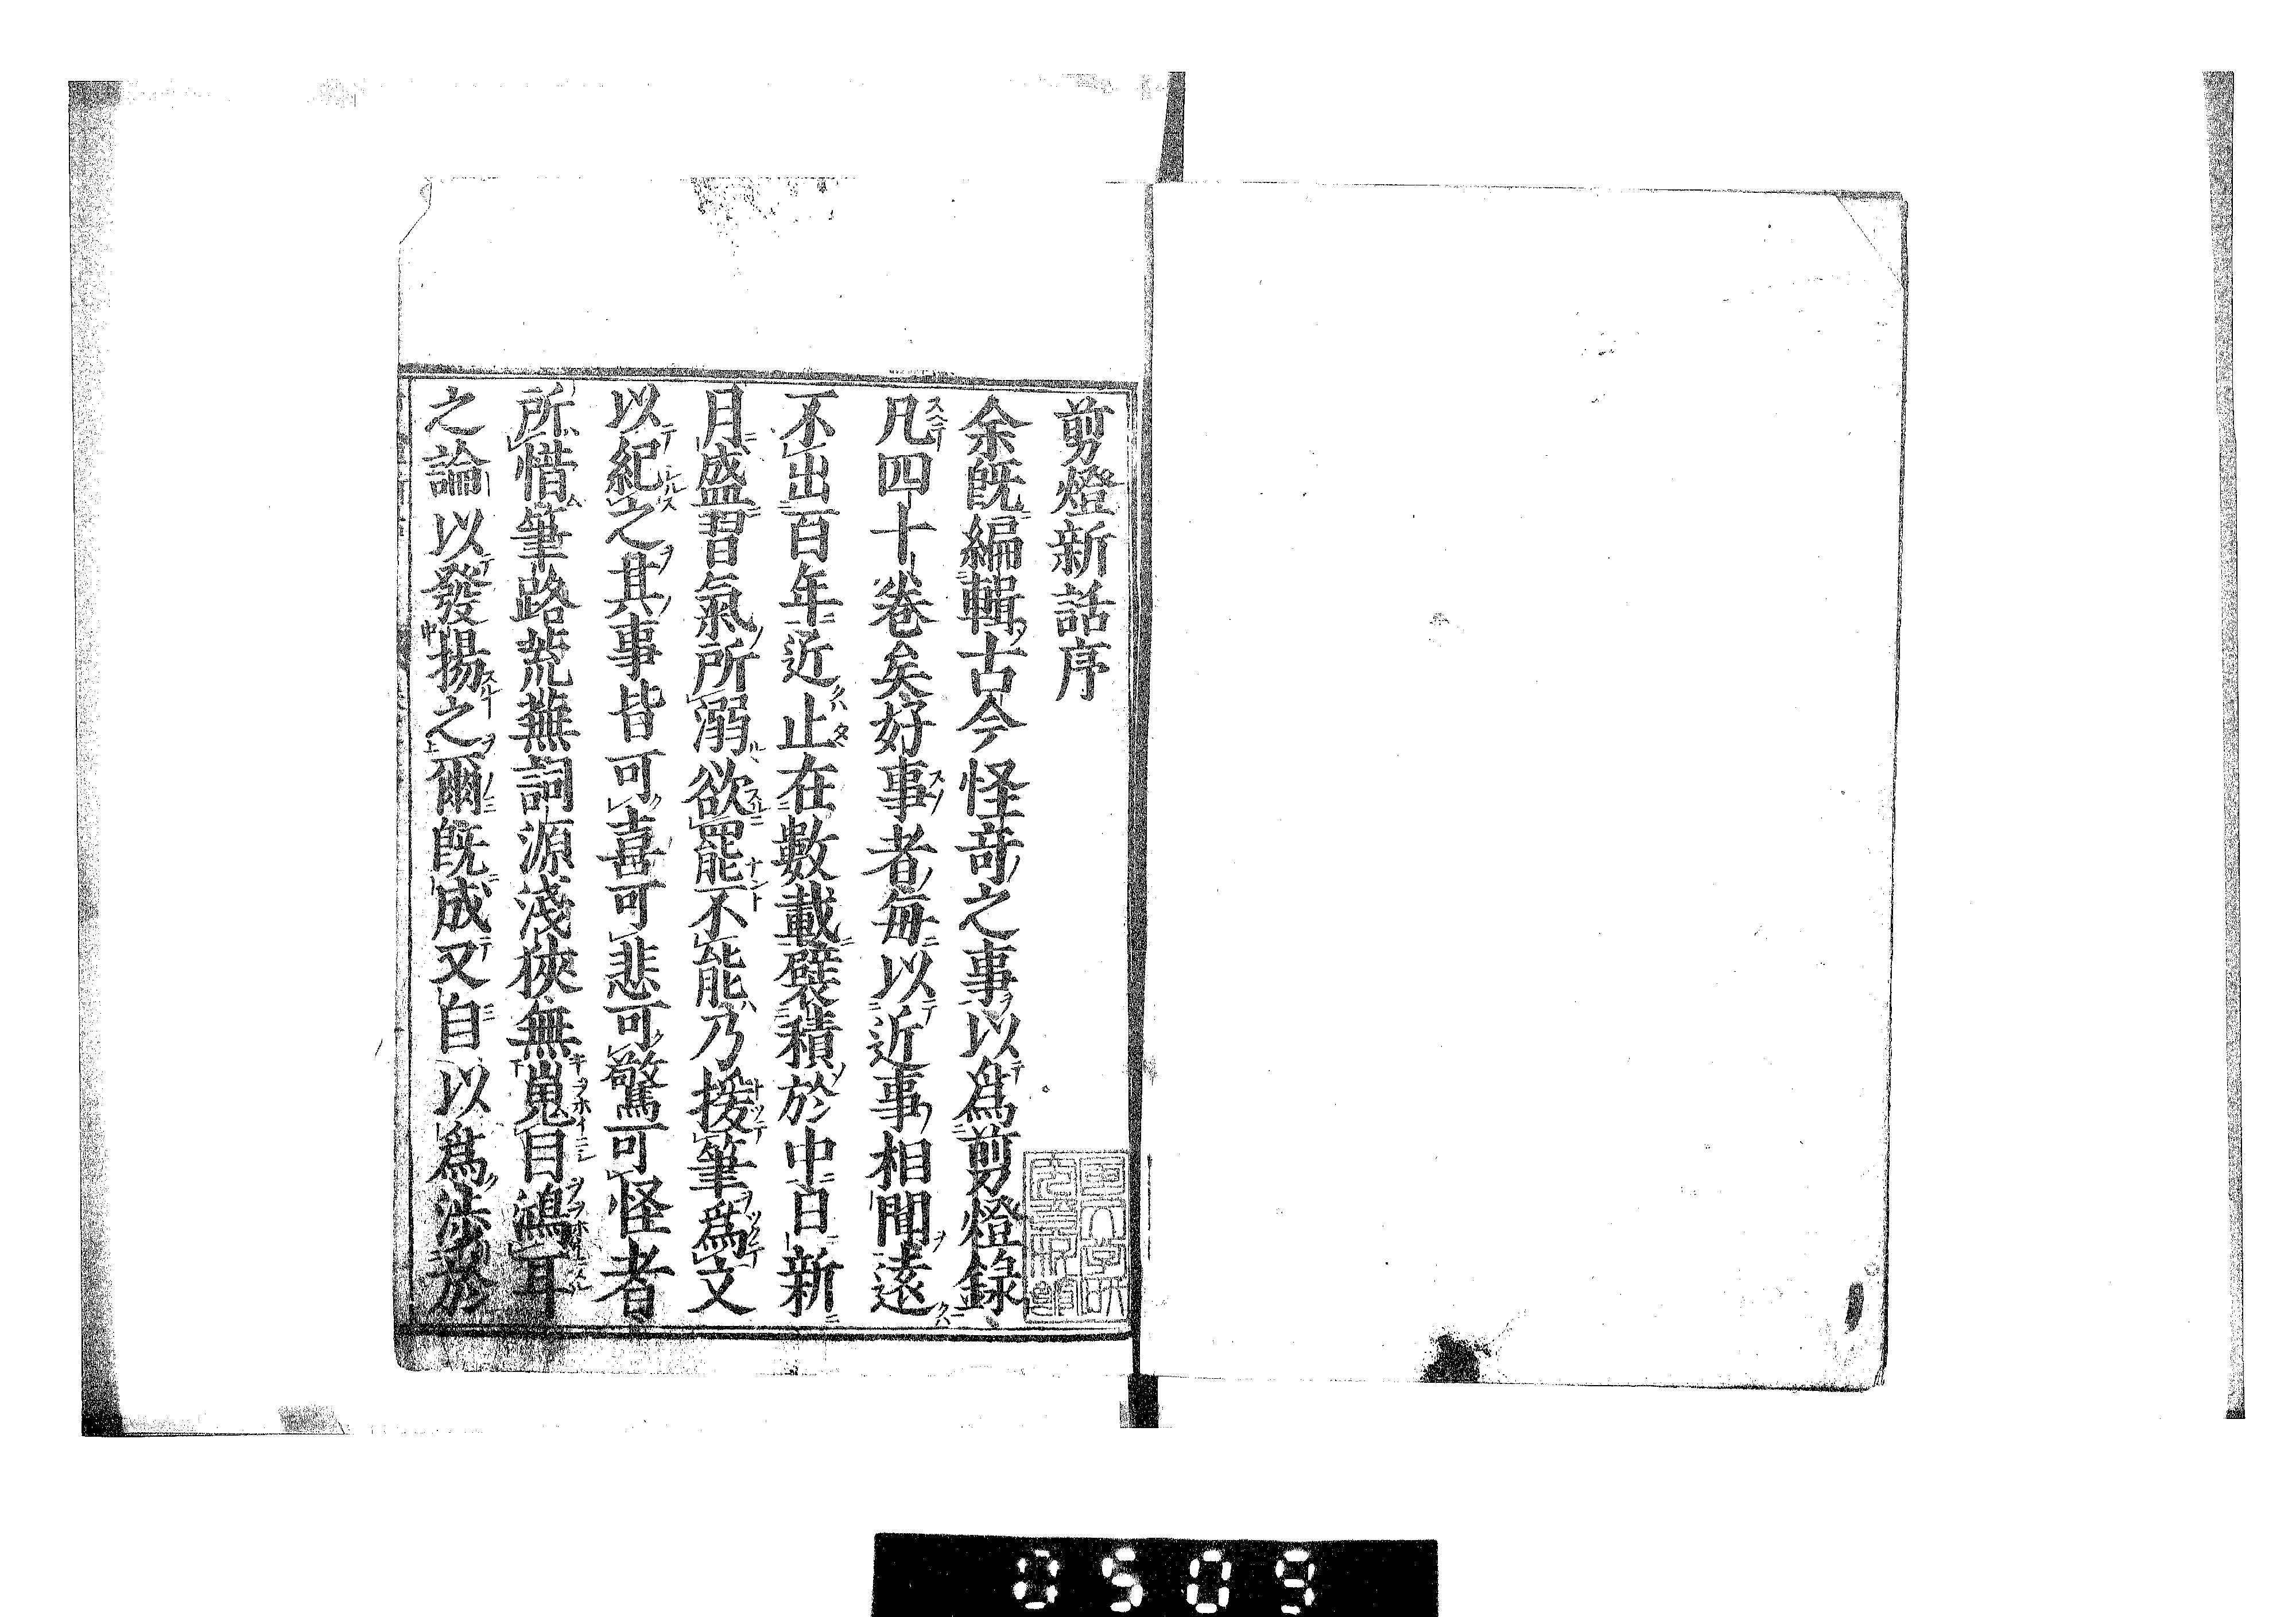 剪燈新話序
余既編輯古今怪竒之事以爲剪燈錄
凡四十卷矣好事者每以近事相聞遠
不出百年近止在數載襞積於中日新
月盛習氣所溺欲罷不能乃援筆爲文
以紀之其事皆可喜可悲可驚可怪者
所惜筆路荒蕪詞源淺狹無嵬目鴻耳
之論以發揚之爾既成又自以爲涉於
0509